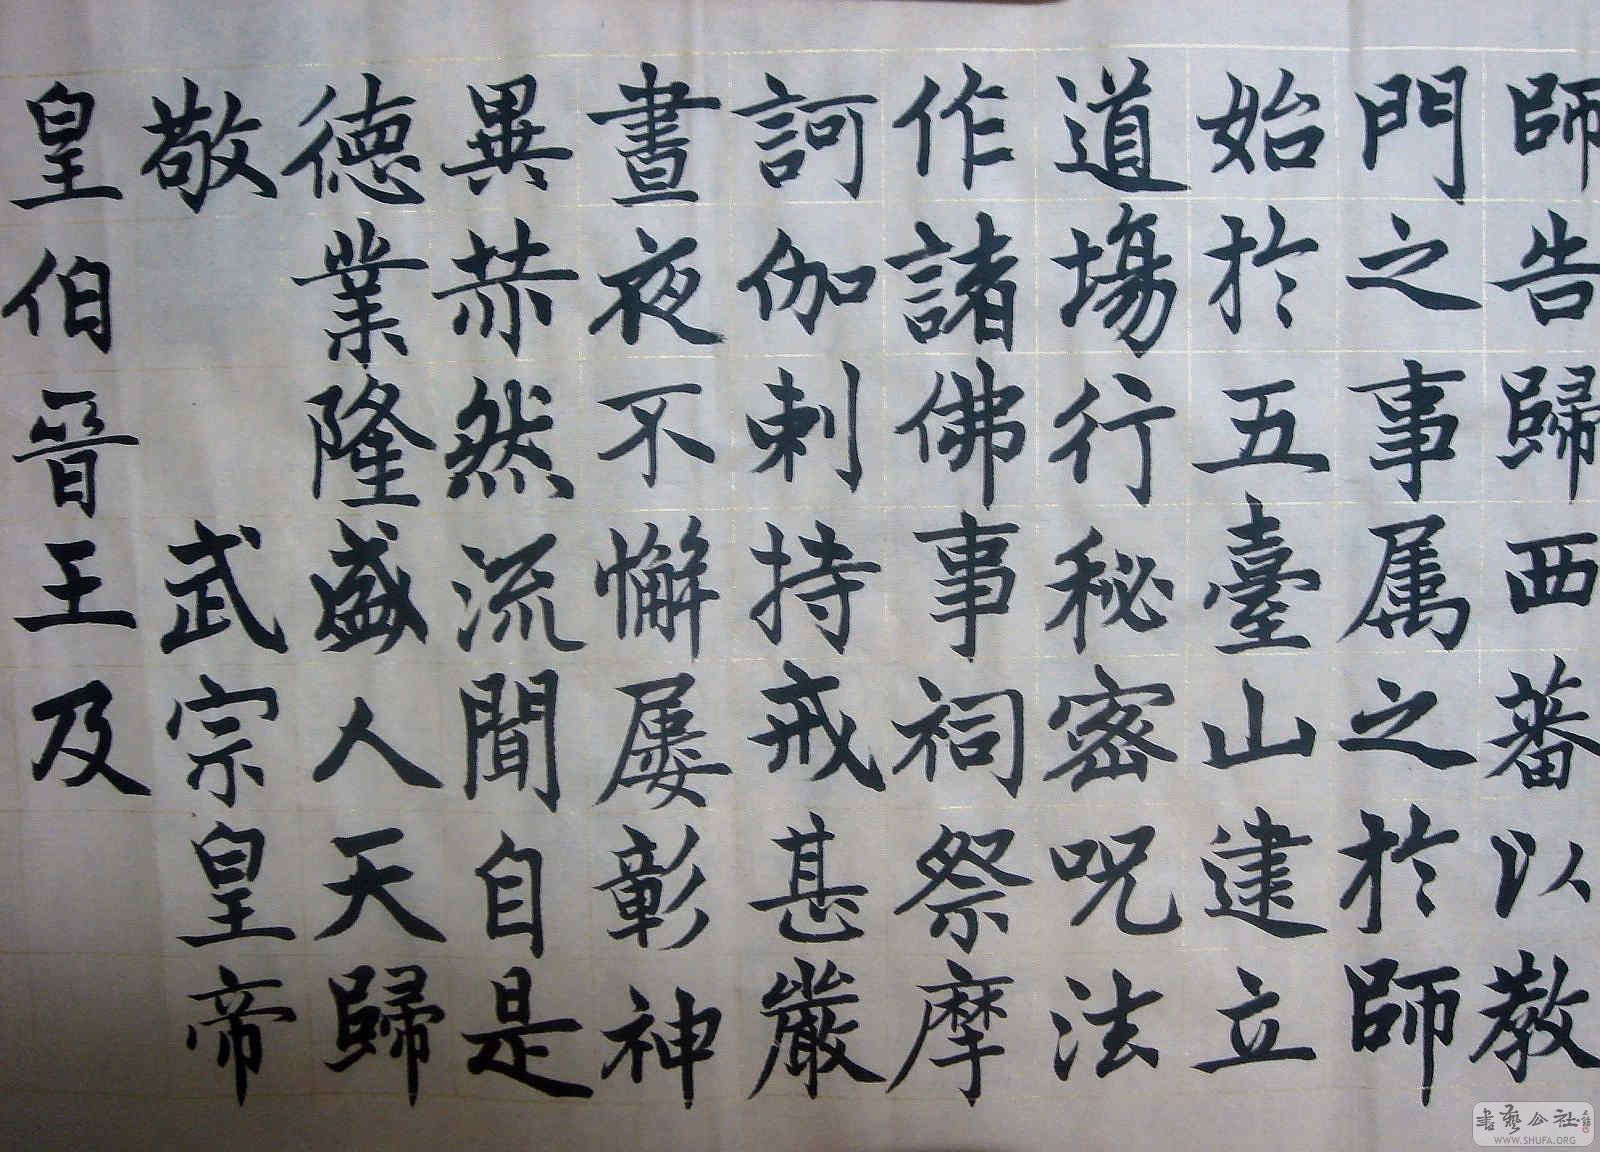 師告歸西蕃以教
門之事属之於師
始於五臺山建立
道場行秘密呪法
作諸佛事祠祭摩
訶伽剌持戒甚嚴
晝夜不懈屢彰神
異赫然流聞自是
德業隆盛人天歸
敬 武宗皇帝
皇伯晉王及
書藝公社
WWW.SHUFA.ORG